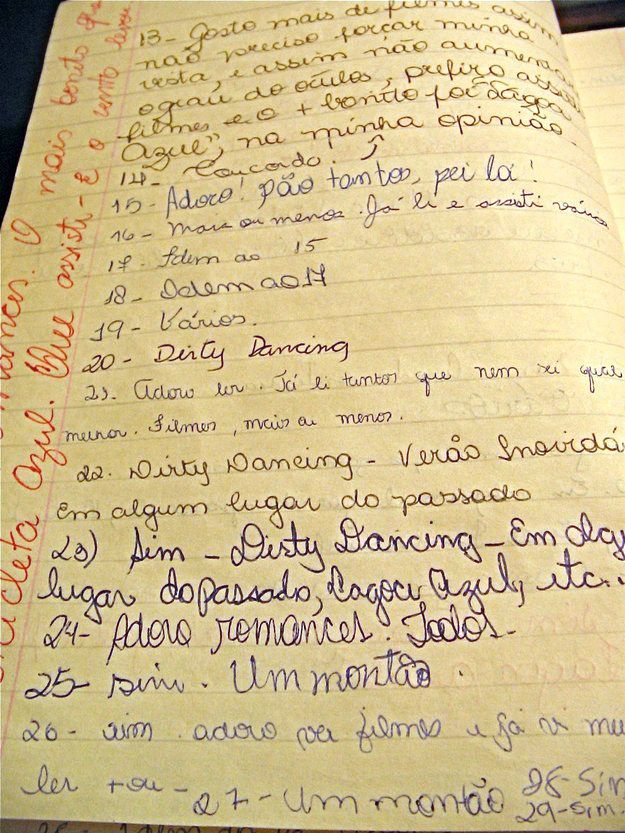 13- Gosto mais de filmes assim
não preciso forçar minha
vista, e assim não aumenta
o grau do óculos, prefiro
filmes e o + bonito foi "Lagoa
Azul", na minha opinião.
14- Concordo.
15- Adoro! Não tantos, sei lá!
16- Mais ou menos. Já li e assisti vários
17- Idem ao 15
18- Idem ao 17
19- Vários.
20- Dirty Dancing
21- Adoro ler. Já li tantos que nem sei qual
melhor. Filmes, mais ou menos.
22- Dirty Dancing - Verão Inovidá
Em algum lugar do passado
23) Sim - Dirty Dancing - Em alg
lugar do passado, Lagoa Azul, etc.
24- Adoro romances. Todos.
25- Sim. Um montão.
26- sim. adoro ver filmes e já vi mui
ler + ou -
27- Um montão
28- Sim
29- Sim.
mances. O mais bonito q
cleta Azul. que assisti - E o vento levou